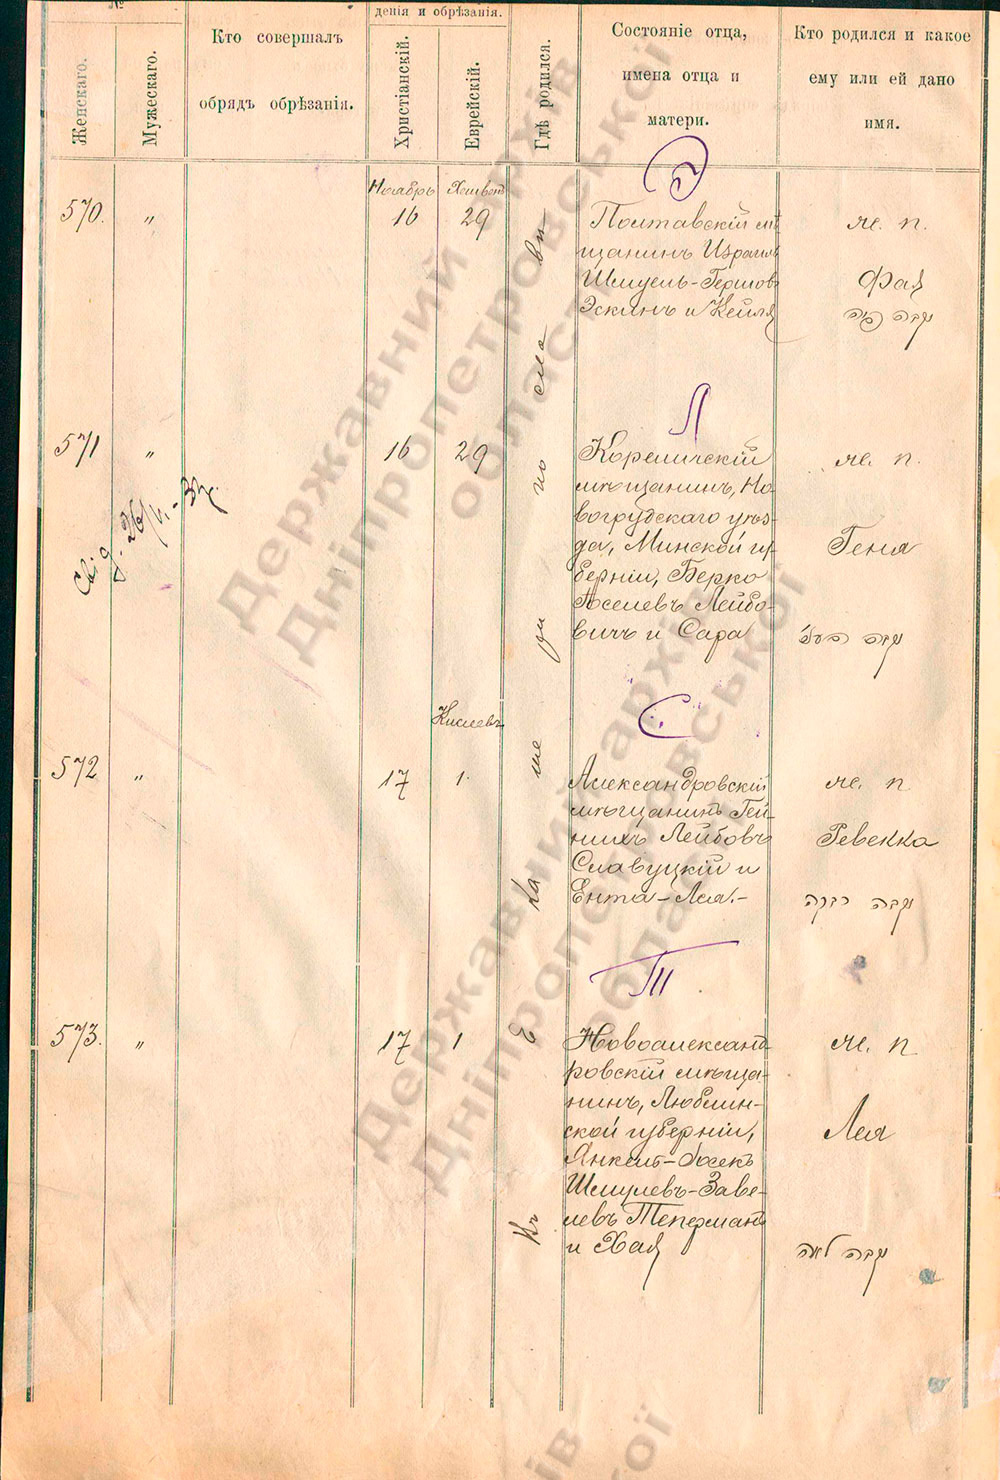 №
Женскаго.
Мужескаго.
Кто совершалъ
обрядъ обрѣзанія.
денія и обрѣзанія.
Христіанскій.
Еврейскій.
Гдѣ родился.
Состояніе отца,
имена отца и
матери.
Кто родился и какое
ему или ей дано
имя.
Къ Е ка те ри но сла вѣ
Э
Ноябрь
570. " 16 29
Полтавскій мѣ
щанинъ Израиль
Шмуель-Гершовъ
Эскинъ и Кейля
ж. п.
Фая
נקבה פייה
Л
571 " 16 29
Свід.
Кореличскій
мѣщанинъ, Но-
вогрудскаго уѣз-
да, Минской гу-
берніи, Берко
Іоселевъ Лейбо-
вичъ и Сара
ж. п.
Геня
נקבה
С
Кислевъ
572 " 17 1.
Александровскій
мѣщанинъ Гей-
нихъ Лейбовъ
Славуцкій и
Ента-Лея.-
ж. п
Ревекка
נקבה רבקה
Т
573. " 17 1
Новоалександ-
ровскій мѣща-
нинъ, Люблин-
ской губерніи,
Янкель-Іосекъ
Шмулевъ-Заве-
левъ Теперманъ
и Хая
ж. п
Лея
נקבה לאה
Державний архів
Дніпропетровської
області
Державний архів
Дніпропетровської
області